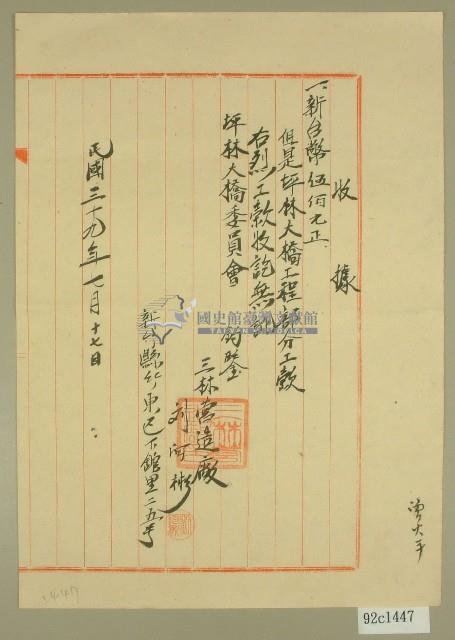 收據
一、新台幣伍佰元正
但是坪林大橋工程部分工款
右烈工款收訖無訛
坪林大橋委員會 鈞鑒
三林營造廠
刘阿彬
新竹縣竹東鎮下館里二五号
民國三十九年七月十七日
國史館臺灣文獻館
92c1447